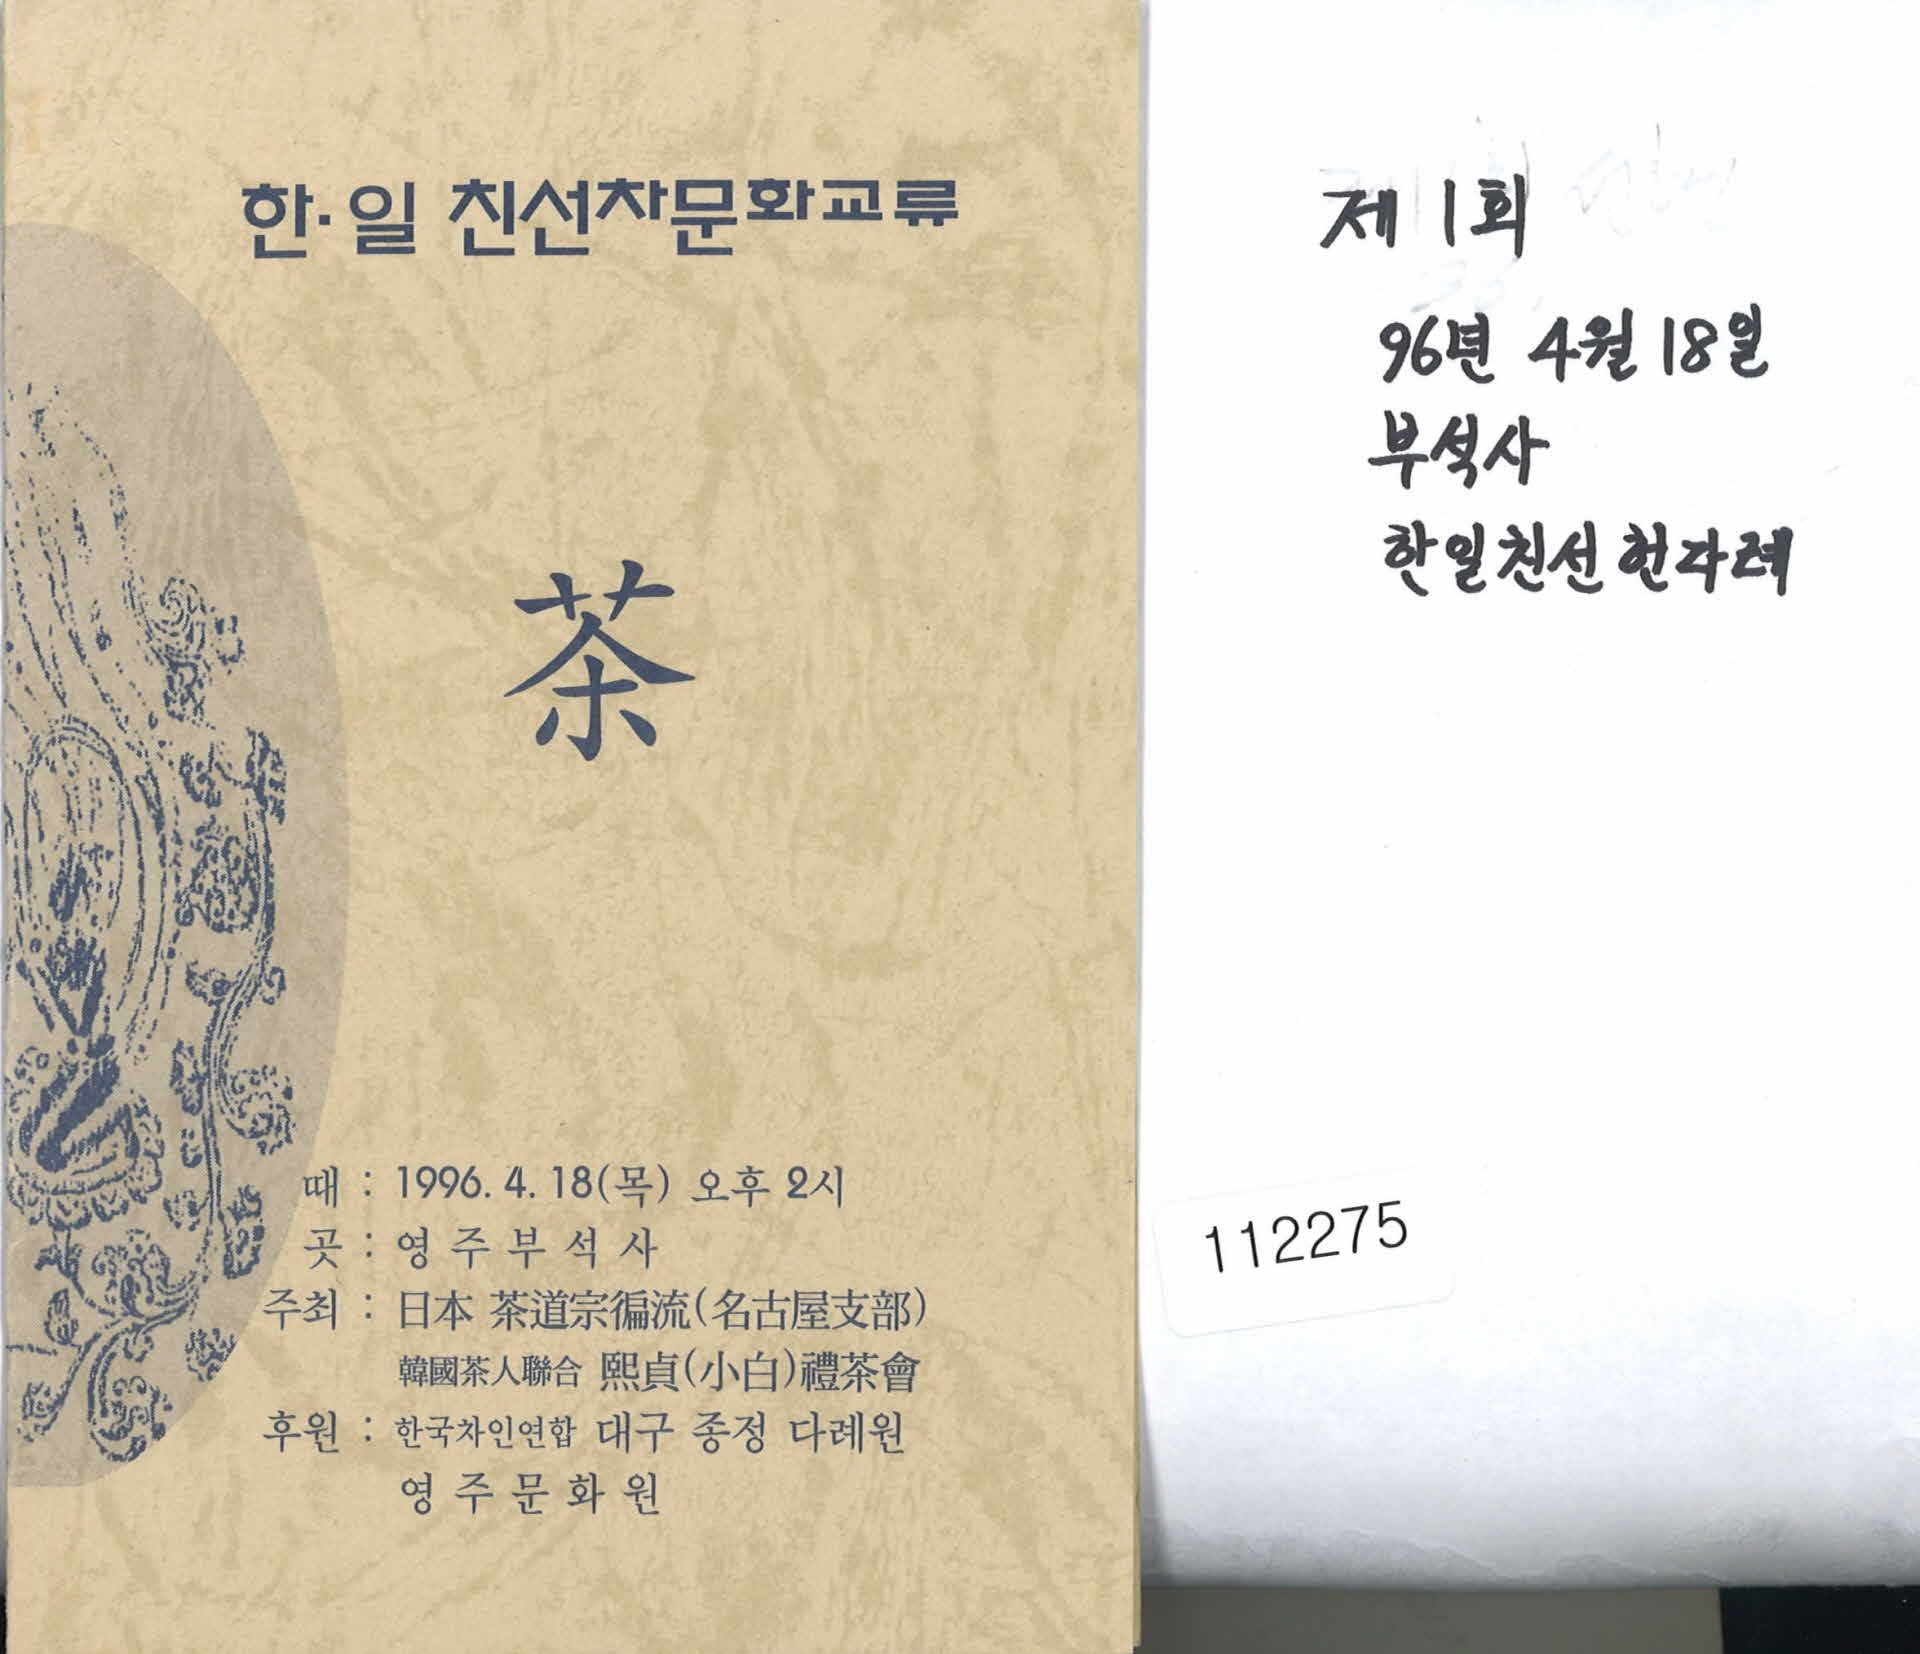 한·일 친선차문화교류
茶
때 : 1996. 4. 18(목) 오후 2시
곳 : 영주부석사
주최 : 日本 茶道宗徧流(名古屋支部)
韓國茶人聯合 熙貞(小白)禮茶會
후원 : 한국차인연합 대구 종정 다례원
영주문화원
제 1회
96년 4월 18일
부석사
한일친선헌다례
112275